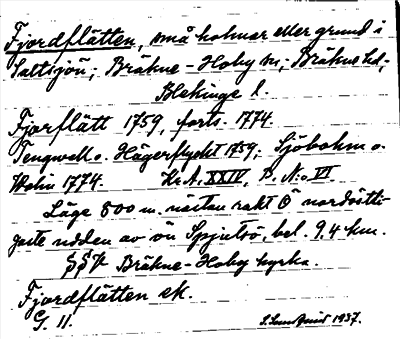 Fjordflätten, små holmar eller grund i
Saltsjön; Bräkne-Hoby sn; Bräkne hd,
Blekinge l.
Fjorflätt 1759, forts. 1774.
Tengwall o. Hägerflycht 1759; Sjöbohm o.
Wolin 1774. Kr.A. XXIV, D. N:o VI
Läge 800 m. nästan rakt Ö nordöstli-
gaste udden av ön Spjutsö, bel. 9,4 km.
SSV Bräkne-Hoby kyrka.
Fjordflätten ek.
G. 11. 1937.